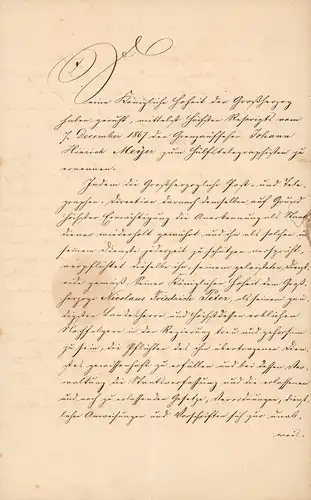 Seine Königliche Hoheit der Großherzog
haben geruht, mittelst Höchsten Rescripts vom
7. December 1867 den Grenzaufseher Johann
Hinrich Meyer zum Hülfstelegraphisten zu
ernennen.
Indem die Großherzogliche Post- und Tele-
graphen-Direction darnach demselben auf Grund
Höchster Ermächtigung die Anerkennung als Staats
diener hiedurch gewährt und ihn als solchen in
seinem Dienste jederzeit zu schützen verspricht,
verpflichtet dieselbe ihn, seinem geleisteten Dienst-
eide gemäß Seiner Königlichen Hoheit dem Groß-
herzoge Nicolaus Friedrich Peter, als seinem gnä-
digsten Landesherrn und Höchstdessen erblichen
Nachfolgern in der Regierung treu und gehorsam
zu sein, die Pflichten des ihm übertragenen Dien-
stes gewissenhaft zu erfüllen und bei dessen Ver-
waltung die Staatsverfassung und die erlassenen
und noch zu erlassenden Gesetze, Verordnungen, dienst-
liche Anweisungen und Vorschriften sich zur unab-
weis-